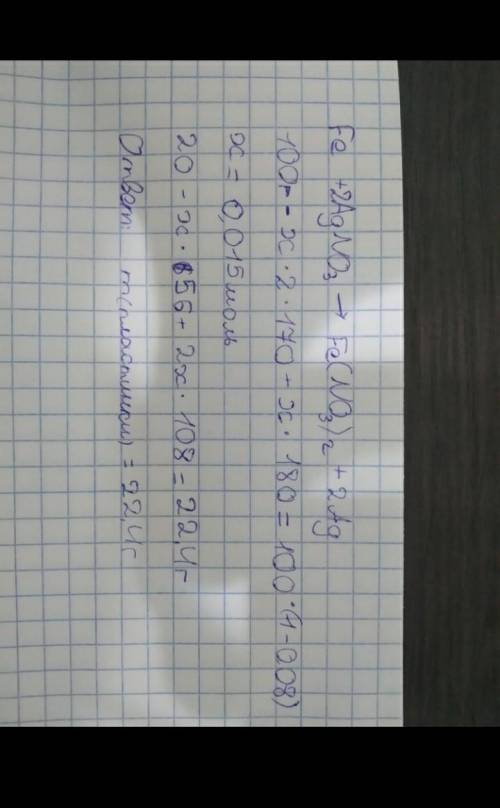 Fe + 2AgNO₃ → Fe(NO₃)₂ + 2Ag
100г - x · 2 · 170 + x · 180 = 100 · (1 - 0,08)
x = 0,015 моль
20 - x · 56 + 2x · 108 = 22,4г
Ответ: m(пластинки) = 22,4г